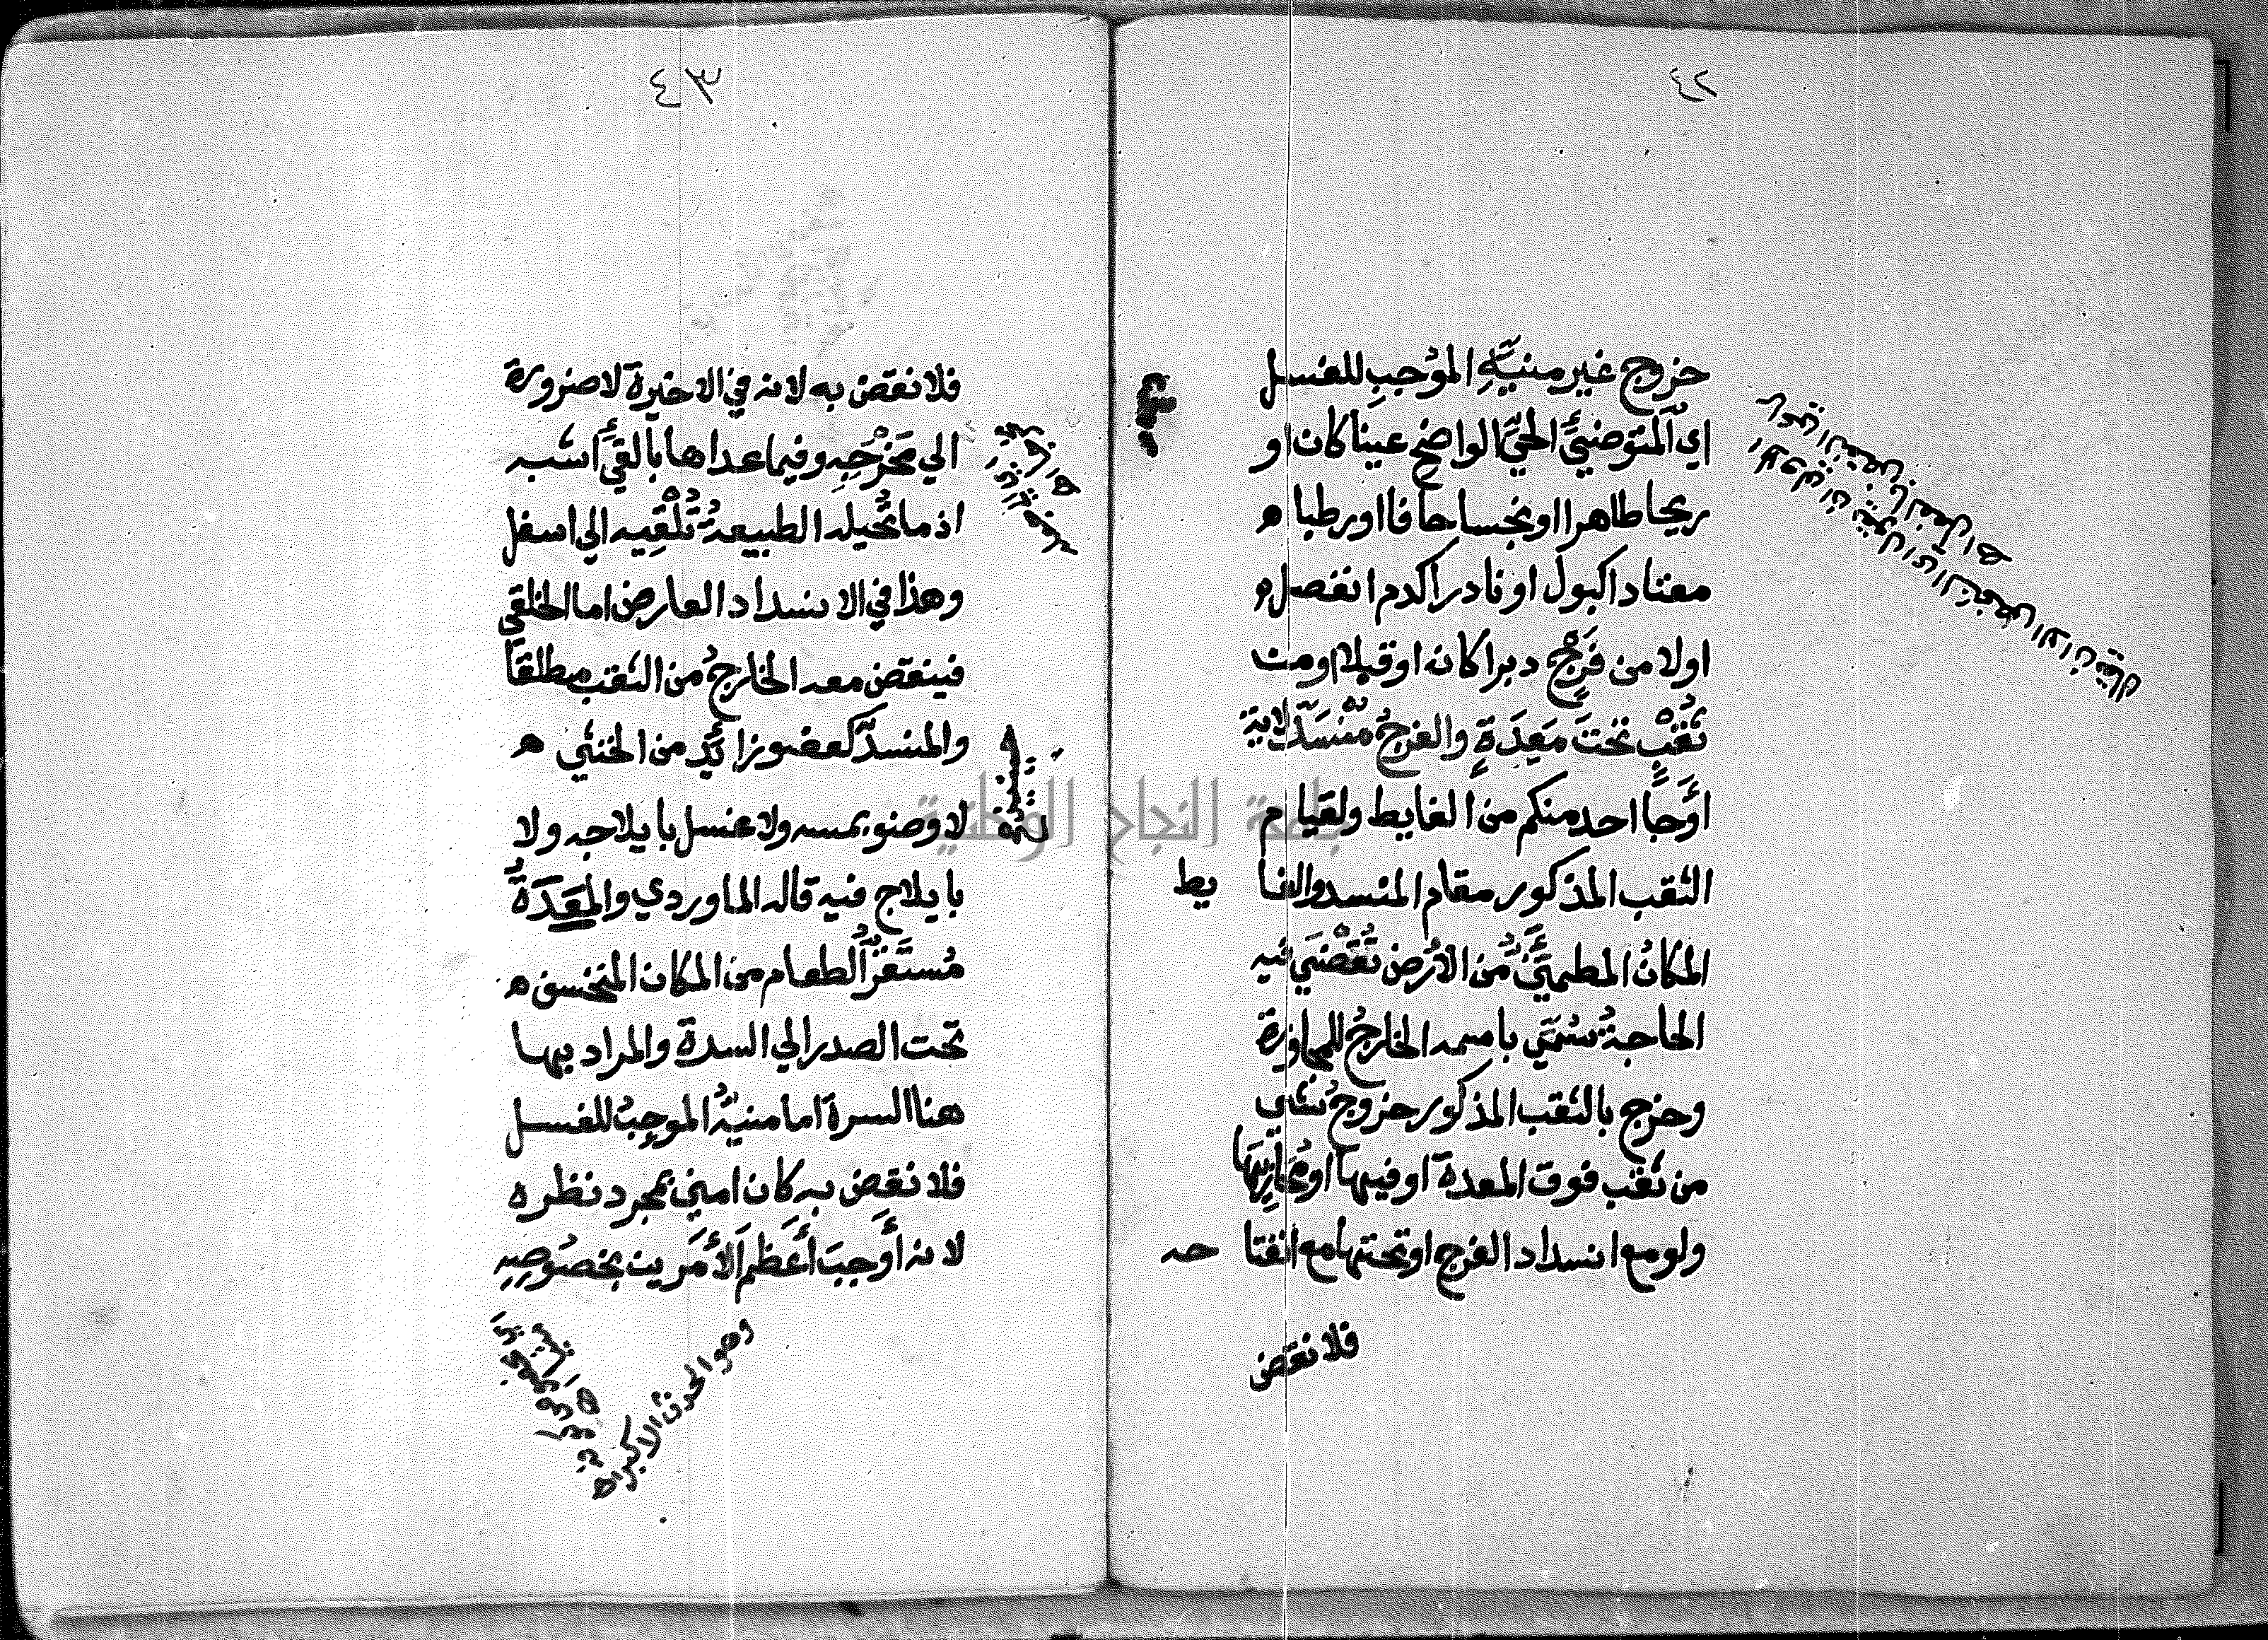 ٤٢
خروج غير منيّه الموجب للغسل
اي المتوضئ الحيّ الواضح عينا كان او
ريحا طاهرا او نجسا جافا او رطبا ه
معتادا كبول او نادرا كدم انفصل ه
اولا من فرج دبرا كان او قبلا او من
ثقب تحت معدة والفرج منسد لاية
او جا احد منكم من الغايط ولقيام
الثقب المذكور مقام المنسد والغايط
المكان المطمئن من الارض تقضي فيه
الحاجة سمي باسمه الخارج للمجاورة
وخرج بالثقب المذكور خروج شي
من ثقب فوق المعدة او فيها او محاذيها
ولو مع انسداد الفرج او تحتها مع انفتاحه
فلا نقض
٤٣
فلا نقض به لانه في الاخيرة لا ضرورة
الي مخرجه وفيما عداها بالقئ اشبه
اذ ما تحيله الطبيعة تلقيه الي اسفل
وهذا في الانسداد العارض اما الخلقي
فينقض معه الخارج من الثقب مطلقا
والمنسد كعضو زائد من الخنثي ه
لا وضو بمسه ولا غسل بايلاجه ولا
بايلاج فيه قاله الماوردي والمعدة
مستقر الطعام من المكان المنخسف ه
تحت الصدر الي السدة والمراد بها
هنا السرة اما منيه الموجب للغسل
فلا نقض به كان امني بمجرد نظره
لانه أوجب أعظم الأمرين بخصوصه
وهو الحدث الاكبر اه